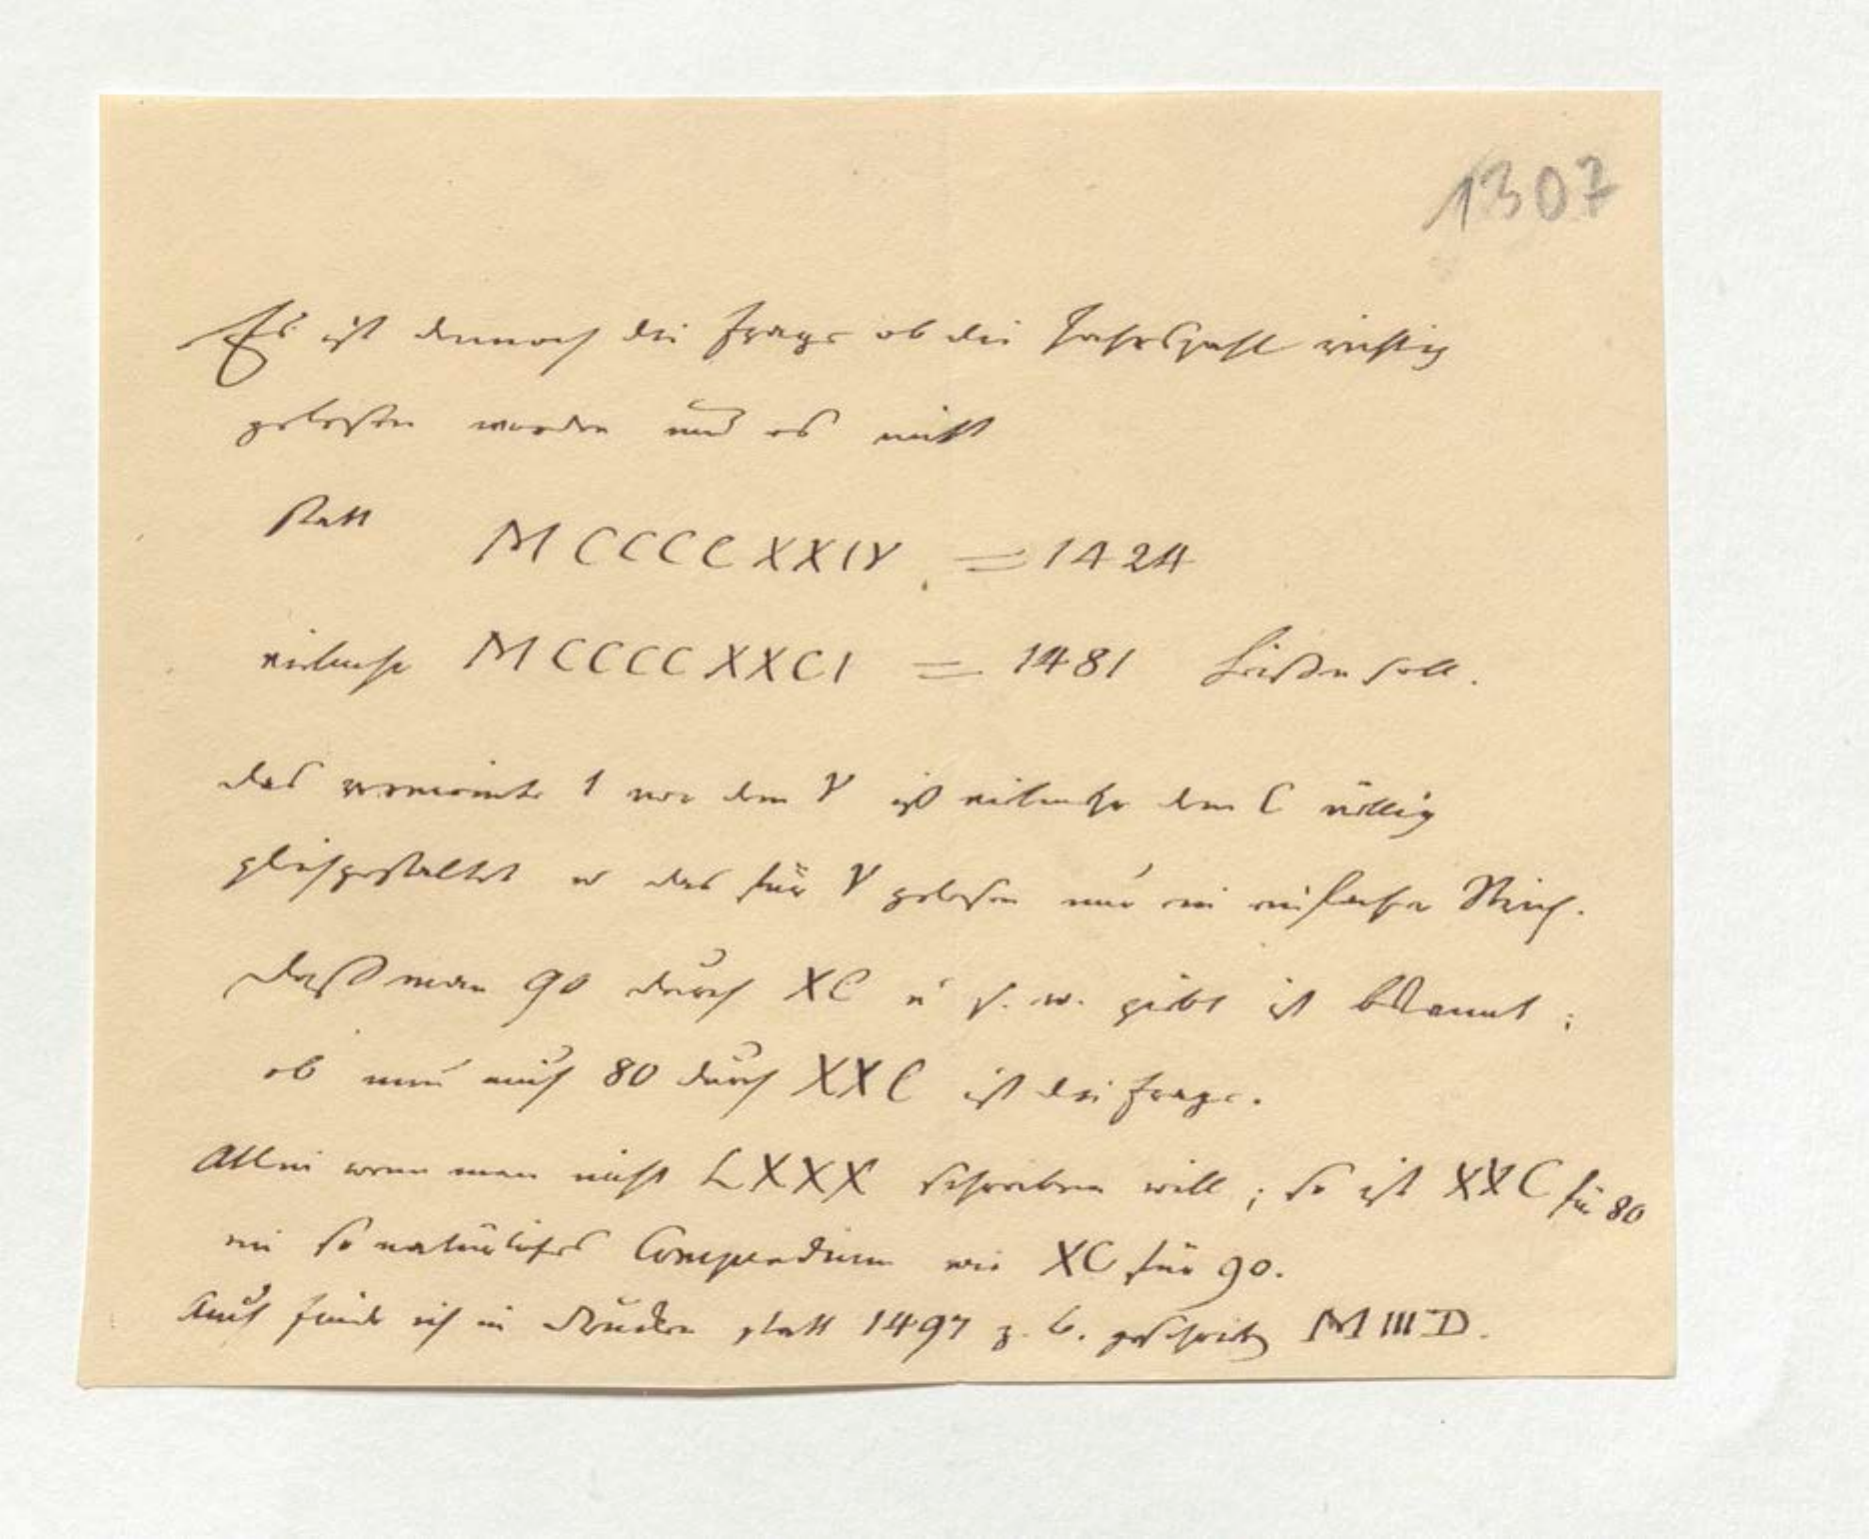 1307
Es ist dennoch die Frage ob die Jahrszahl richtig
gelesen worden und es nicht
statt MCCCCXXIV = 1424
vielmehr MCCCCXXCI = 1481 heißen soll.
das vermeinte 1 vor dem V ist vielmehr dem C völlig
gleichgestaltet u das für V gelesene nur ein einfacher Strich.
daß man 90 durch XC u s. w. gibt ist bekannt;
ob nun auch 80 durch XXC ist die Frage.
Allein wenn man nicht LXXX schreiben will; so ist XXC für 80
ein so natürliches Compendium wie XC für 90.
Auch finde ich in Drucken statt 1497 z. b. geschrieben MIIID.